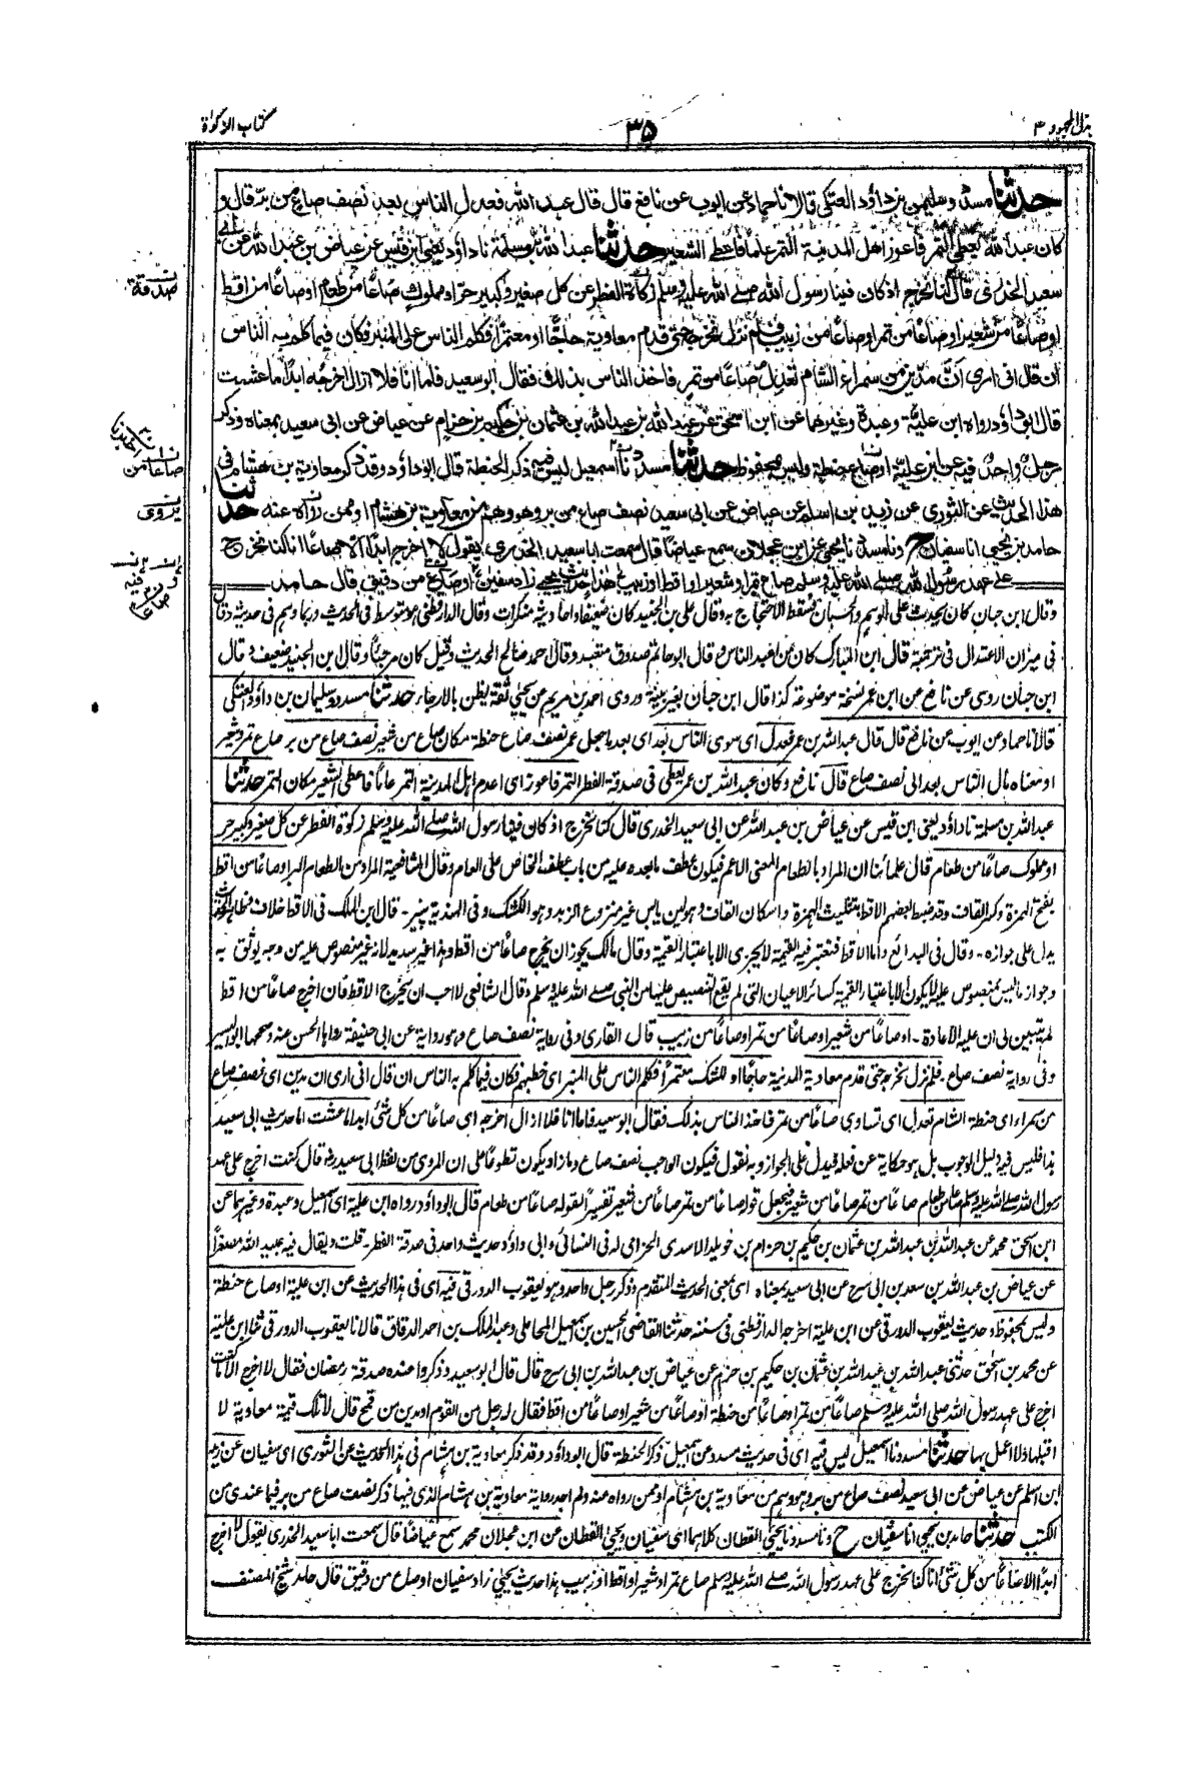 بذل المجهود ٣
٣٥
كتاب الزكوٰة
حدثنا مسدد وسليمن بن داؤد العتكى قالا نا حماد عن ايوب عن نافع قال قال عبد الله فعدل الناس بعد نصف صاع من بر قال و
كان عبد الله يعطى التمر فاعوز اهل المدينة التمر عاما فاعطى الشعير حدثنا عبد الله بن مسلمة نا داؤد يعنى ابن قيس عن عياض بن عبد الله عن ابى
سعيد الخدرى قال كنا نخرج اذ كان فينا رسول الله صلے الله عليه وسلم زكاة الفطر عن كل صغير وكبير حر او مملوك صاعًا من طعام او صاعًا من اقط
صدقة
او صاعًا من شعير او صاعًا من تمر او صاعًا من زبيب فلم نزل نخرجه حتى قدم معاوية حاجًا او معتمرًا فكلم الناس على المنبر فكان فيما كلم به الناس
ان قال انى ارى ان مدين من سمراء الشام تعدل صاعًا من تمر فاخذ الناس بذلك فقال ابو سعيد فاما انا فلا ازال اخرجه ابدًا ما عشت
قال ابو داؤد رواه ابن علية وعبدة وغيرهما عن ابن اسحق عن عبد الله بن عبد الله بن عثمان بن حكيم بن حزام عن عياض عن ابى سعيد بمعناه وذكر
رجل واحد فيه عن ابن علية او صاع حنطة وليس بمحفوظ حدثنا مسدد نا اسمعيل ليس فيه ذكر الحنطة قال ابو داؤد وقد ذكر معاوية بن هشام فى
صاعا من
هذا الحديث عن الثورى عن زيد بن اسلم عن عياض عن ابى سعيد نصف صاع من بر وهو وهم من معاوية بن هشام او ممن رواه عنه حدثنا
يروى
حامد بن يحيى انا سفيان ح ونا مسدد نا يحيى عن ابن عجلان سمع عياضًا قال سمعت ابا سعيد الخدرى يقول لا اخرج ابدًا الا صاعًا انا كنا نخرج
على عهد رسول الله صلے الله عليه وسلم صاع تمر او شعير او اقط او زبيب هذا حديث يحيى زاد سفيان او صاع من دقيق قال حامد
وقال ابن حبان كان يحدث على الوهم والحسبان فسقط الاحتجاج به وقال على بن الجنيد كان ضعيفا واحاديثه منكرات وقال الدارقطنى هو متوسط فى الحديث وربما وهم فى حديثه وقال
فى ميزان الاعتدال فى ترجمته قال ابن المبارك كان من اعبد الناس وقال ابو حاتم صدوق متعبد وقال احمد صالح الحديث وقيل كان مرجيًا وقال ابن الجنيد ضعيف وقال
ابن حبان روى عن نافع عن ابن عمر نسخة موضوعة كذا قال ابن حبان بغير بينة وروى احمد بن مريم عن يحيى ثقة يظن بالارجاء حدثنا مسدد وسليمان بن داؤد العتكى
قالا نا حماد عن ايوب عن نافع قال قال عبد الله بن عمر فعدل اى سوى الناس بعد اى بعد ما جعل عمر نصف صاع حنطة مكان صاع من شعير نصف صاع من بر صاع تمر وشعير
او معناه مال الناس بعد الى نصف صاع قال نافع وكان عبد الله بن عمر يعطى فى صدقة الفطر التمر فاعوز اى اعدم اهل المدينة التمر عامًا فاعطى الشعير مكان التمر حدثنا
عبد الله بن مسلمة نا داؤد يعنى ابن قيس عن عياض بن عبد الله عن ابى سعيد الخدرى قال كنا نخرج اذ كان فينا رسول الله صلے الله عليه وسلم زكوة الفطر عن كل صغير وكبير حر
او مملوك صاعًا من طعام قال علمائنا ان المراد بالطعام المعنى الاعم فيكون عطف ما بعده عليه من باب عطف الخاص على العام وقال الشافعية المراد من الطعام البر او صاعًا من اقط
بفتح الهمزة وكسر القاف وقد ضبط بعضهم الاقط بتثليث الهمزة واسكان القاف وهو لبن يابس غير منزوع الزبد وهو الكشك وفى الهندية پنير ۔ قال ابن الملك فى الاقط خلاف فظاهر الحديث
يدل على جوازه ۔ وقال فى البدائع واما الاقط فتعتبر فيه القيمة لا يجزى الا باعتبار القيمة وقال مالك يجوز ان يخرج صاعًا من اقط وهذا غير سديد لانه غير منصوص عليه من وجه يوثق به
وجواز ما ليس بمنصوص عليه لا يكون الا باعتبار القيمة كسائر الاعيان التى لم يقع التنصيص عليها من النبى صلے الله عليه وسلم وقال الشافعى لا احب ان يخرج الاقط فان اخرج صاعًا من اقط
لم يتبين لى ان عليه الاعادة ۔ او صاعًا من شعير او صاعًا من تمر او صاعًا من زبيب قال القارى وفى رواية نصف صاع وهو رواية عن ابى حنيفة رواها الحسن عنه وصححها ابو اليسر
وفى رواية نصف صاع ۔ فلم نزل نخرجه حتى قدم معاوية المدينة حاجًا او للشك معتمرًا فكلم الناس على المنبر اى خطبهم فكان فيما كلم به الناس ان قال انى ارى ان مدين اى نصف صاع
من سمراء اى حنطة الشام تعدل اى تساوى صاعًا من تمر فاخذ الناس بذلك فقال ابو سعيد فاما انا فلا ازال اخرجه اى صاعًا من كل شئ ابدا ما عشت اما حديث ابى سعيد
هذا فليس فيه دليل الوجوب بل هو حكاية عن فعله فيدل على الجواز وبه نقول فيكون الواجب نصف صاع وما زاد يكون تطوعًا على ان المروى من لفظ ابى سعيد رضه قال كنت اخرج على عهد
رسول الله صلے الله عليه وسلم صاعا من طعام صاعًا من تمر صاعًا من شعير فيجعل قوله صاعًا من تمر صاعًا من شعير تفسيرًا لقوله صاعًا من طعام قال ابو داؤد رواه ابن علية اى اسمعيل وعبدة وغيرهما عن
ابن اسحق محمد عن عبد الله بن عبد الله بن عثمان بن حكيم بن حزام بن خويلد الاسدى الحزامى له فى النسائى وابى داؤد حديث واحد فى صدقة الفطر ۔ قلت ويقال فيه عبيد الله مصغرًا
عن عياض بن عبد الله بن سعد بن ابى سرح عن ابى سعيد بمعناه اى بمعنى الحديث المتقدم وذكر رجل واحد وهو يعقوب الدورقى فيه اى فى هذا الحديث عن ابن علية او صاع حنطة
وليس بمحفوظ وحديث يعقوب الدورقى عن ابن علية اخرجه الدارقطنى فى سننه حدثنا القاضى الحسين بن اسمعيل المحاملى وعبد الملك بن احمد الدقاق قالا نا يعقوب الدورقى ثنا ابن علية
عن محمد بن اسحق حدثنى عبد الله بن عبد الله بن عثمان بن حكيم بن حزام عن عياض بن عبد الله بن ابى سرح قال قال ابو سعيد وذكروا عنده صدقة رمضان فقال لا اخرج الا ما كنت
اخرج على عهد رسول الله صلى الله عليه وسلم صاعًا من تمر او صاعًا من حنطة او صاعًا من شعير او صاعًا من اقط فقال له رجل من القوم او مدين من قمح قال لا تلك قيمة معاوية لا
اقبلها ولا اعمل بها حدثنا مسدد نا اسمعيل ليس فيه اى فى حديث مسدد عن اسمعيل ذكر الحنطة قال ابو داؤد وقد ذكر معاوية بن هشام فى هذا الحديث عن الثورى اى سفيان عن زيد
ابن اسلم عن عياض عن ابى سعيد نصف صاع من بر وهو وهم من معاوية بن هشام او ممن رواه عنه ولم اجد رواية معاوية بن هشام الذى فيها ذكر نصف صاع من بر فيما عندى من
الكتب حدثنا حامد بن يحيى انا سفيان ح ونا مسدد نا يحيى القطان كلاهما اى سفيان ويحيى القطان عن ابن عجلان محمد سمع عياضًا قال سمعت ابا سعيد الخدرى يقول لا اخرج
ابدًا الا صاعًا من كل شئ انا كنا نخرج على عهد رسول الله صلے الله عليه وسلم صاع تمر او شعير او اقط او زبيب هذا حديث يحيى زاد سفيان او صاع من دقيق قال حامد شيخ المصنف